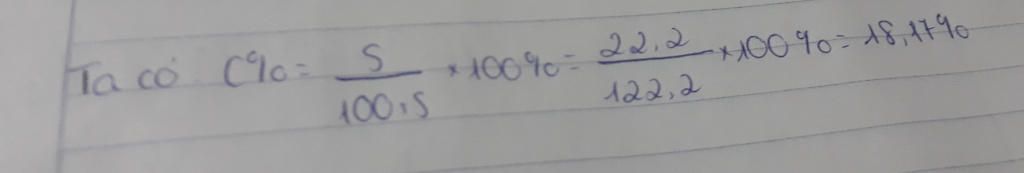 Ta có C%= S/100.S ×100%= 22.2/122,2 ×100%= 18,17%